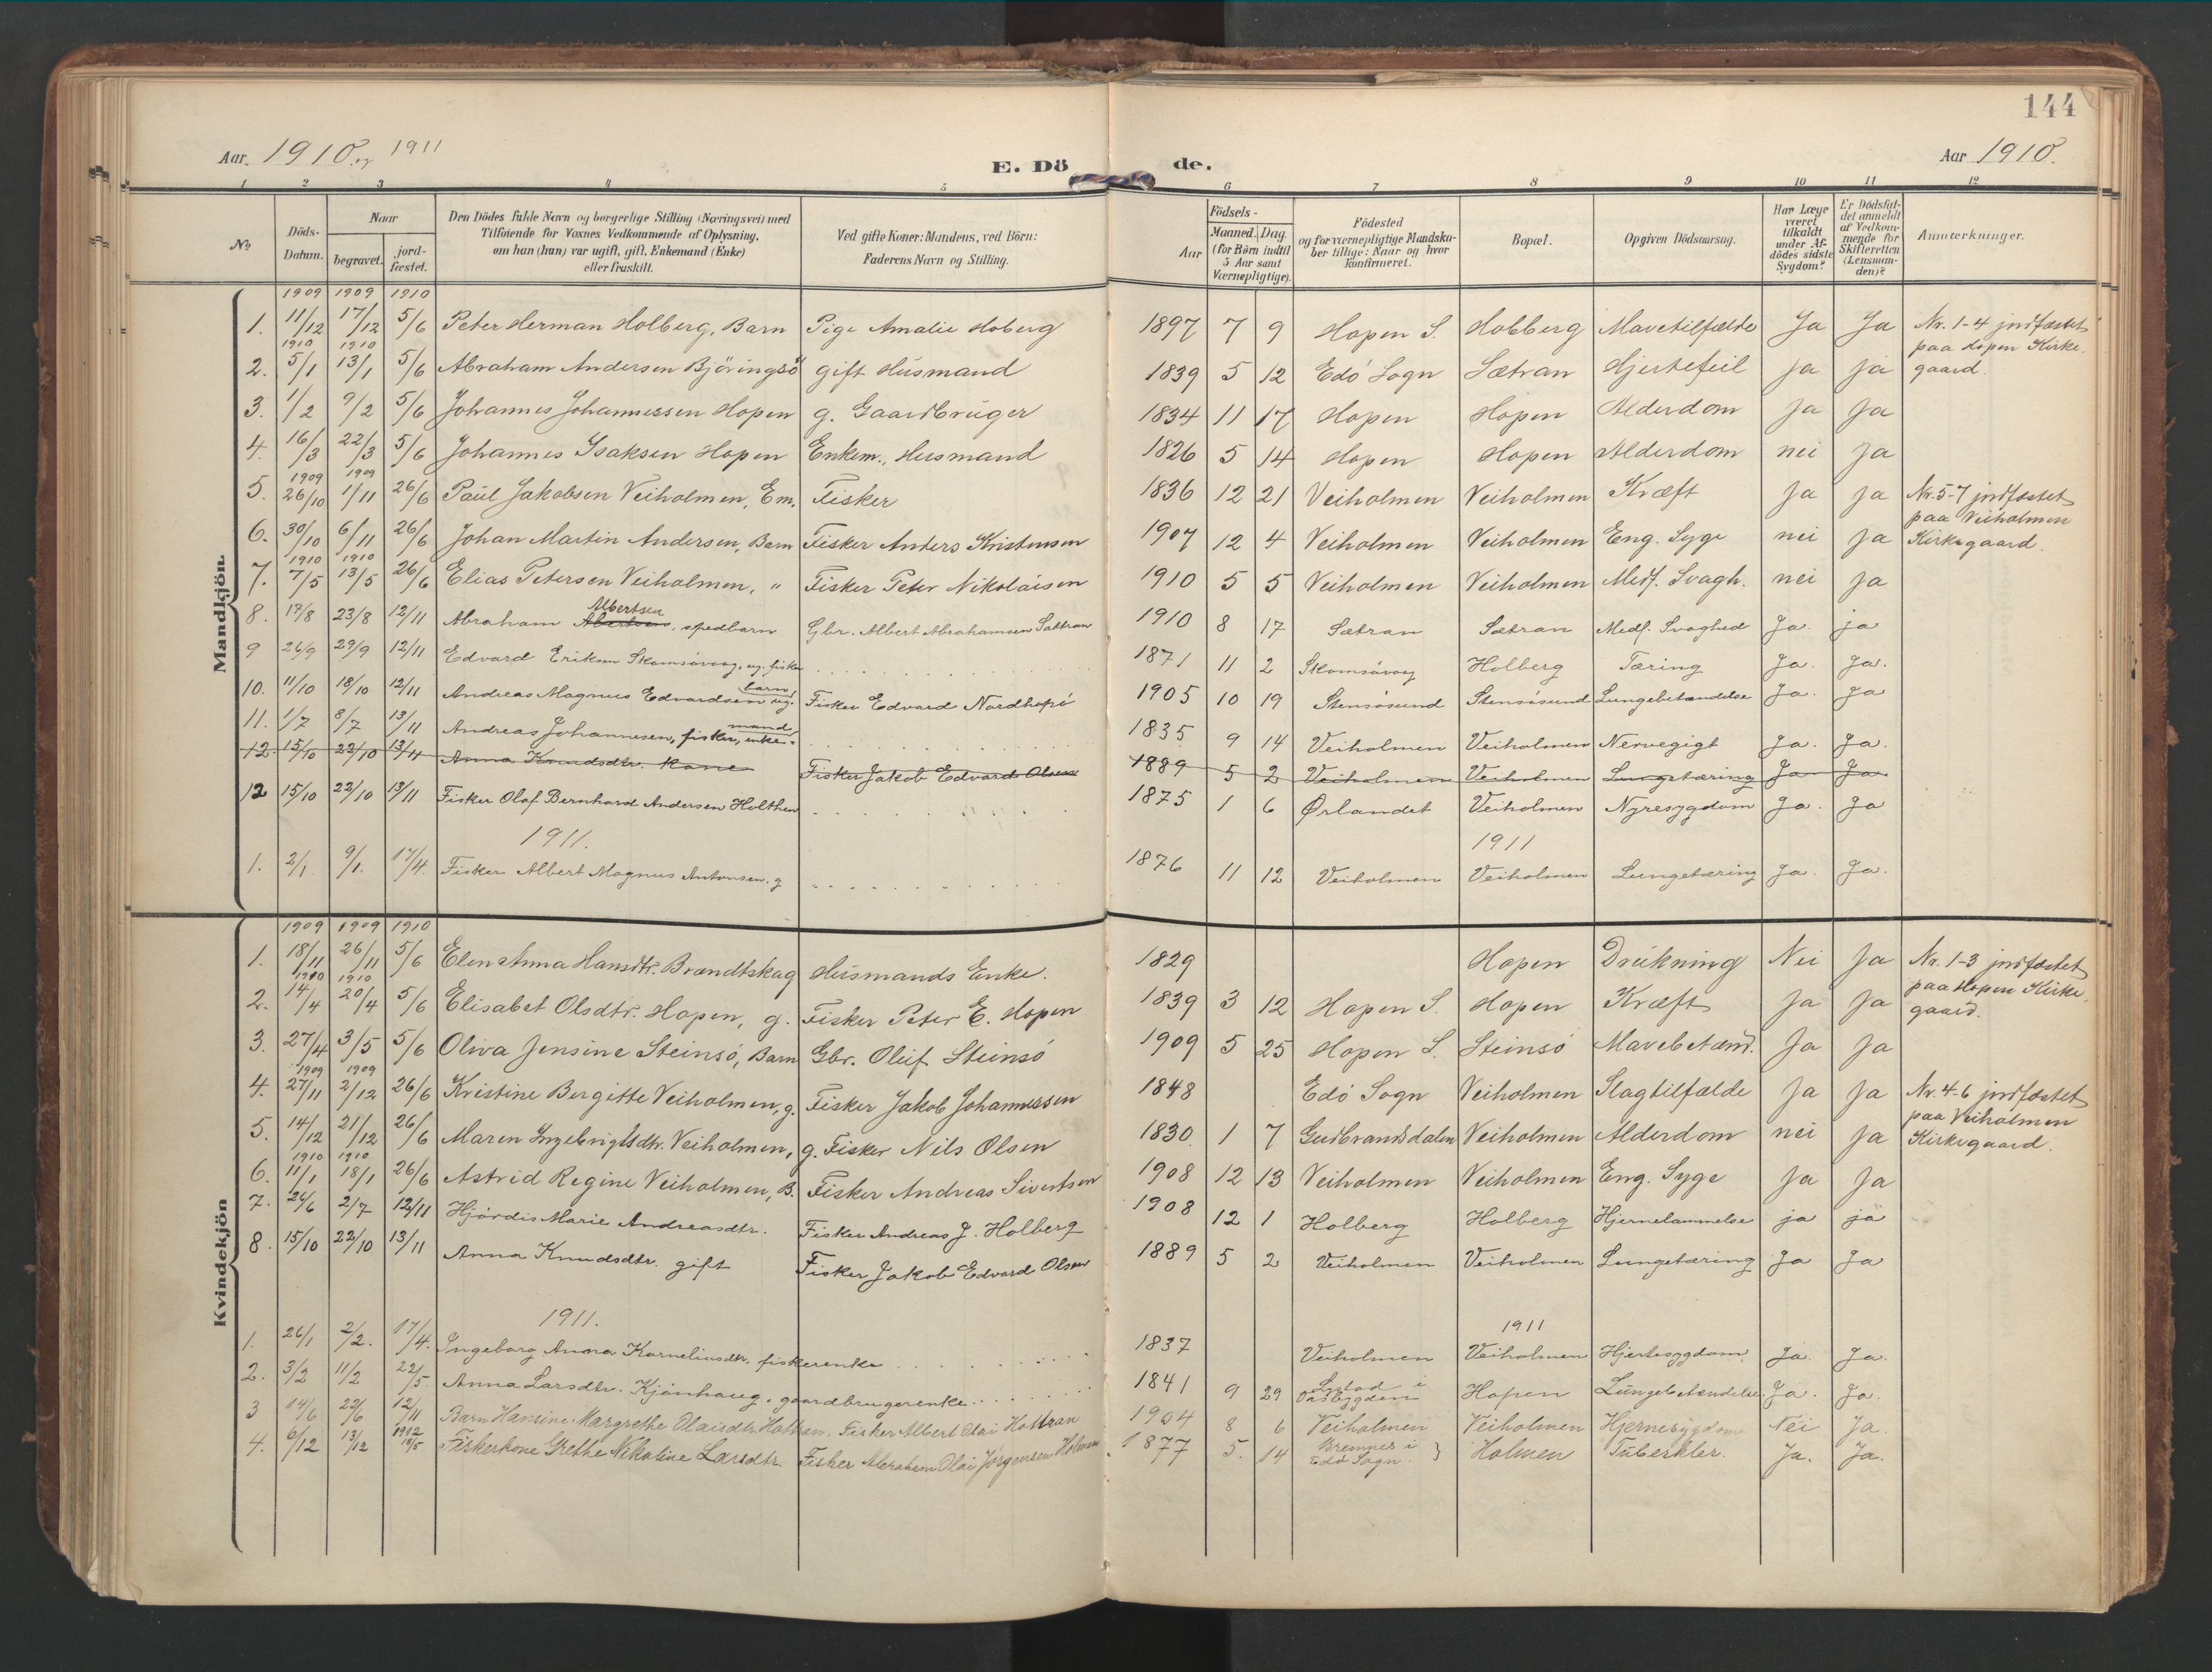 144
Aar. 1910 og 1911
E. Dö de.
Aar 1910.
1 2 3 4 5 6 7 8 9 10 11 12
No
Döds-Datum.
Naar begravet. jord-fæstet.
Den Dödes fulde Navn og borgerlige Stilling (Næringsvei) med Tilföiende for Voxnes Vedkommende af Oplysning, om han (hun) var ugift, gift, Enkemand (Enke) eller fraskilt.
Ved gifte Koner: Mandens, ved Börn: Faderens Navn og Stilling.
Födsels-
Aar Maaned. Dag. (for Börn indtil 5 Aar samt Værnepligtige).
Födested og for værnepligtige Mandskaber tillige: Naar og hvor konfirmeret.
Bopæl.
Opgiven Dödsaarsag.
Har Læge været tilkaldt under Afdödes sidste Sygdom?
Er Dödsfaldet anmeldt af Vedkommende for Skifteretten (Lensmanden)?
Anmærkninger.
Mandkjön.
1909 1909 1910
1. 11/12 17/12 5/6 Peter Herman Holberg, Barn Pige Amalie Hoberg 1897 7 9 Hopen S. Hobberg Mavetilfælde Ja Ja Nr. 1-4 jordfæstet paa Hopen Kirkegaard.
1910 1910
2. 5/1 13/1 5/6 Abraham Andersen Björingsö gift Husmand 1839 5 12 Edö Sogn Sætran Hjertefeil Ja ja
3. 1/2 9/2 5/6 Johannes Johannessen Hopen g. Gaardbruger 1834 11 17 Hopen Hopen Alderdom Ja Ja
4. 16/3 22/3 5/6 Johannes Isaksen Hopen Enkem., Husmand 1826 5 14 Hopen Hopen Alderdom nei ja
1909 1909
5. 26/10 1/11 26/6 Paul Jakobsen Veiholmen, Em. Fisker 1836 12 21 Veiholmen Veiholmen Kræft Ja ja Nr. 5-7 jordfæstet paa Veiholmen Kirkegaard.
6. 30/10 6/11 26/6 Johan Martin Andersen, Barn Fisker Anders Kristensen 1907 12 4 Veiholmen Veiholmen Eng. Syge nei ja
1910 1910
7. 7/5 13/5 26/6 Elias Petersen Veiholmen, " Fisker Peter Nikolaisen 1910 5 5 Veiholmen Veiholmen Medf. Svagh. nei ja
8. 17/8 23/8 12/11 Abraham Albertsen, spedbarn Gbr. Albert Abrahamsen Sætran 1910 8 17 Sætran Sætran Medf. Svaghed Ja. ja
9 26/9 29/9 12/11 Edvard Eriksen Skomsövaag, ug. fisker 1871 11 2 Skomsövaag Holberg Tæring Ja. Ja.
10. 11/10 18/10 12/11 Andreas Magnus Edvardsen ug. barn, Fisker Edvard Nordhopö 1905 10 19 Stensösund Stensösund Lungebetændelse Ja. ja
11. 1/7 8/7 13/11 Andreas Johannesen, fisker, enkemand, 1835 9 14 Veiholmen Veiholmen Nervegigt Ja. Ja.
12. 15/10 22/10 13/11 Anna Knudsdtr. kone Fisker Jakob Edvard Olsen 1889 5 2 Veiholmen Veiholmen Lungetæring Ja Ja
12 15/10 22/10 13/11 Fisker Olaf Bernhard Andersen Holthen 1875 1 6 Ørlandet Veiholmen Nyresygdom Ja. Ja
1911. 1911
1. 2/1 9/1. 17/4. Fisker Albert Magnus Antonsen. g 1876 11 12 Veiholmen Veiholmen Lungetæring Ja. Ja.
Kvindekjön
1909 1909 1910
1. 18/11 26/11 5/6 Elen Anna Hansdtr. Brandtskag Husmands Enke. 1829 Hopen Drukning Nei Ja Nr. 1-3 jordfæstet paa Hopen Kirkegaard.
1910 1910
2. 14/4 20/4 5/6 Elisabet Olsdtr. Hopen, g. Fisker Peter E. Hopen 1839 3 12 Hopen S. Hopen Kræft Ja Ja
3. 27/4 3/5 5/6 Oliva Jensine Steinsö, Barn Gbr. Oluf Steinsö 1909 5 25 Hopen S. Steinsö Mavebetænd. Ja Ja
1909 1909
4. 27/11 2/12 26/6 Kristine Bergitte Veiholmen, g. Fisker Jakob Johannessen 1848 Edö Sogn Veiholmen Slagtilfælde Ja Ja Nr. 4-6 jordfæstet paa Veiholmen Kirkegaard.
5. 14/12 21/12 26/6 Maren Ingebrigtsdtr. Veiholmen, g. Fisker Nils Olsen 1830 1 7 Gudbrandsdalen Veiholmen Alderdom nei Ja
1910 1910
6. 11/1 18/1 26/6 Astrid Regine Veiholmen, B. Fisker Andreas Sivertsen 1908 12 13 Veiholmen Veiholmen Eng. Syge Ja Ja
7. 26/6 2/7 12/11 Hjördis Marie Andreasdtr. Fisker Andreas J. Holberg 1908 12 1 Holberg Holberg Hjernelammelse ja ja
8. 15/10 22/10 13/11 Anna Knudsdtr. gift Fisker Jakob Edvard Olsen 1889 5 2 Veiholmen Veiholmen Lungetæring Ja Ja
1911. 1911
1. 26/1 2/2. 17/4. Ingeborg Anna Korneliusdtr. fiskerenke 1837 Veiholmen Veiholmen Hjertesygdom Ja. Ja.
2. 3/2 11/2 22/5. Anna Larsdtr. Kjönhaug, gaardbrugerenke 1841 9 29 i Hopen Lungebetændelse. Ja. Ja.
3 14/6 22/6 12/11 Barn Hansine Margrethe Olaisdtr. Fisker Albert Olai 1904 8 6 Veiholmen Veiholmen Hjernesygdom Nei Ja.
4. 6/12 13/12 1912 Fiskerkone Grethe Nikoline Larsdtr. Fisker Abraham Olai Jørgensen Holmen 1877 5. 14 Bremnes i Edö Sogn. } Holmen Tuberkler. Ja. Ja.